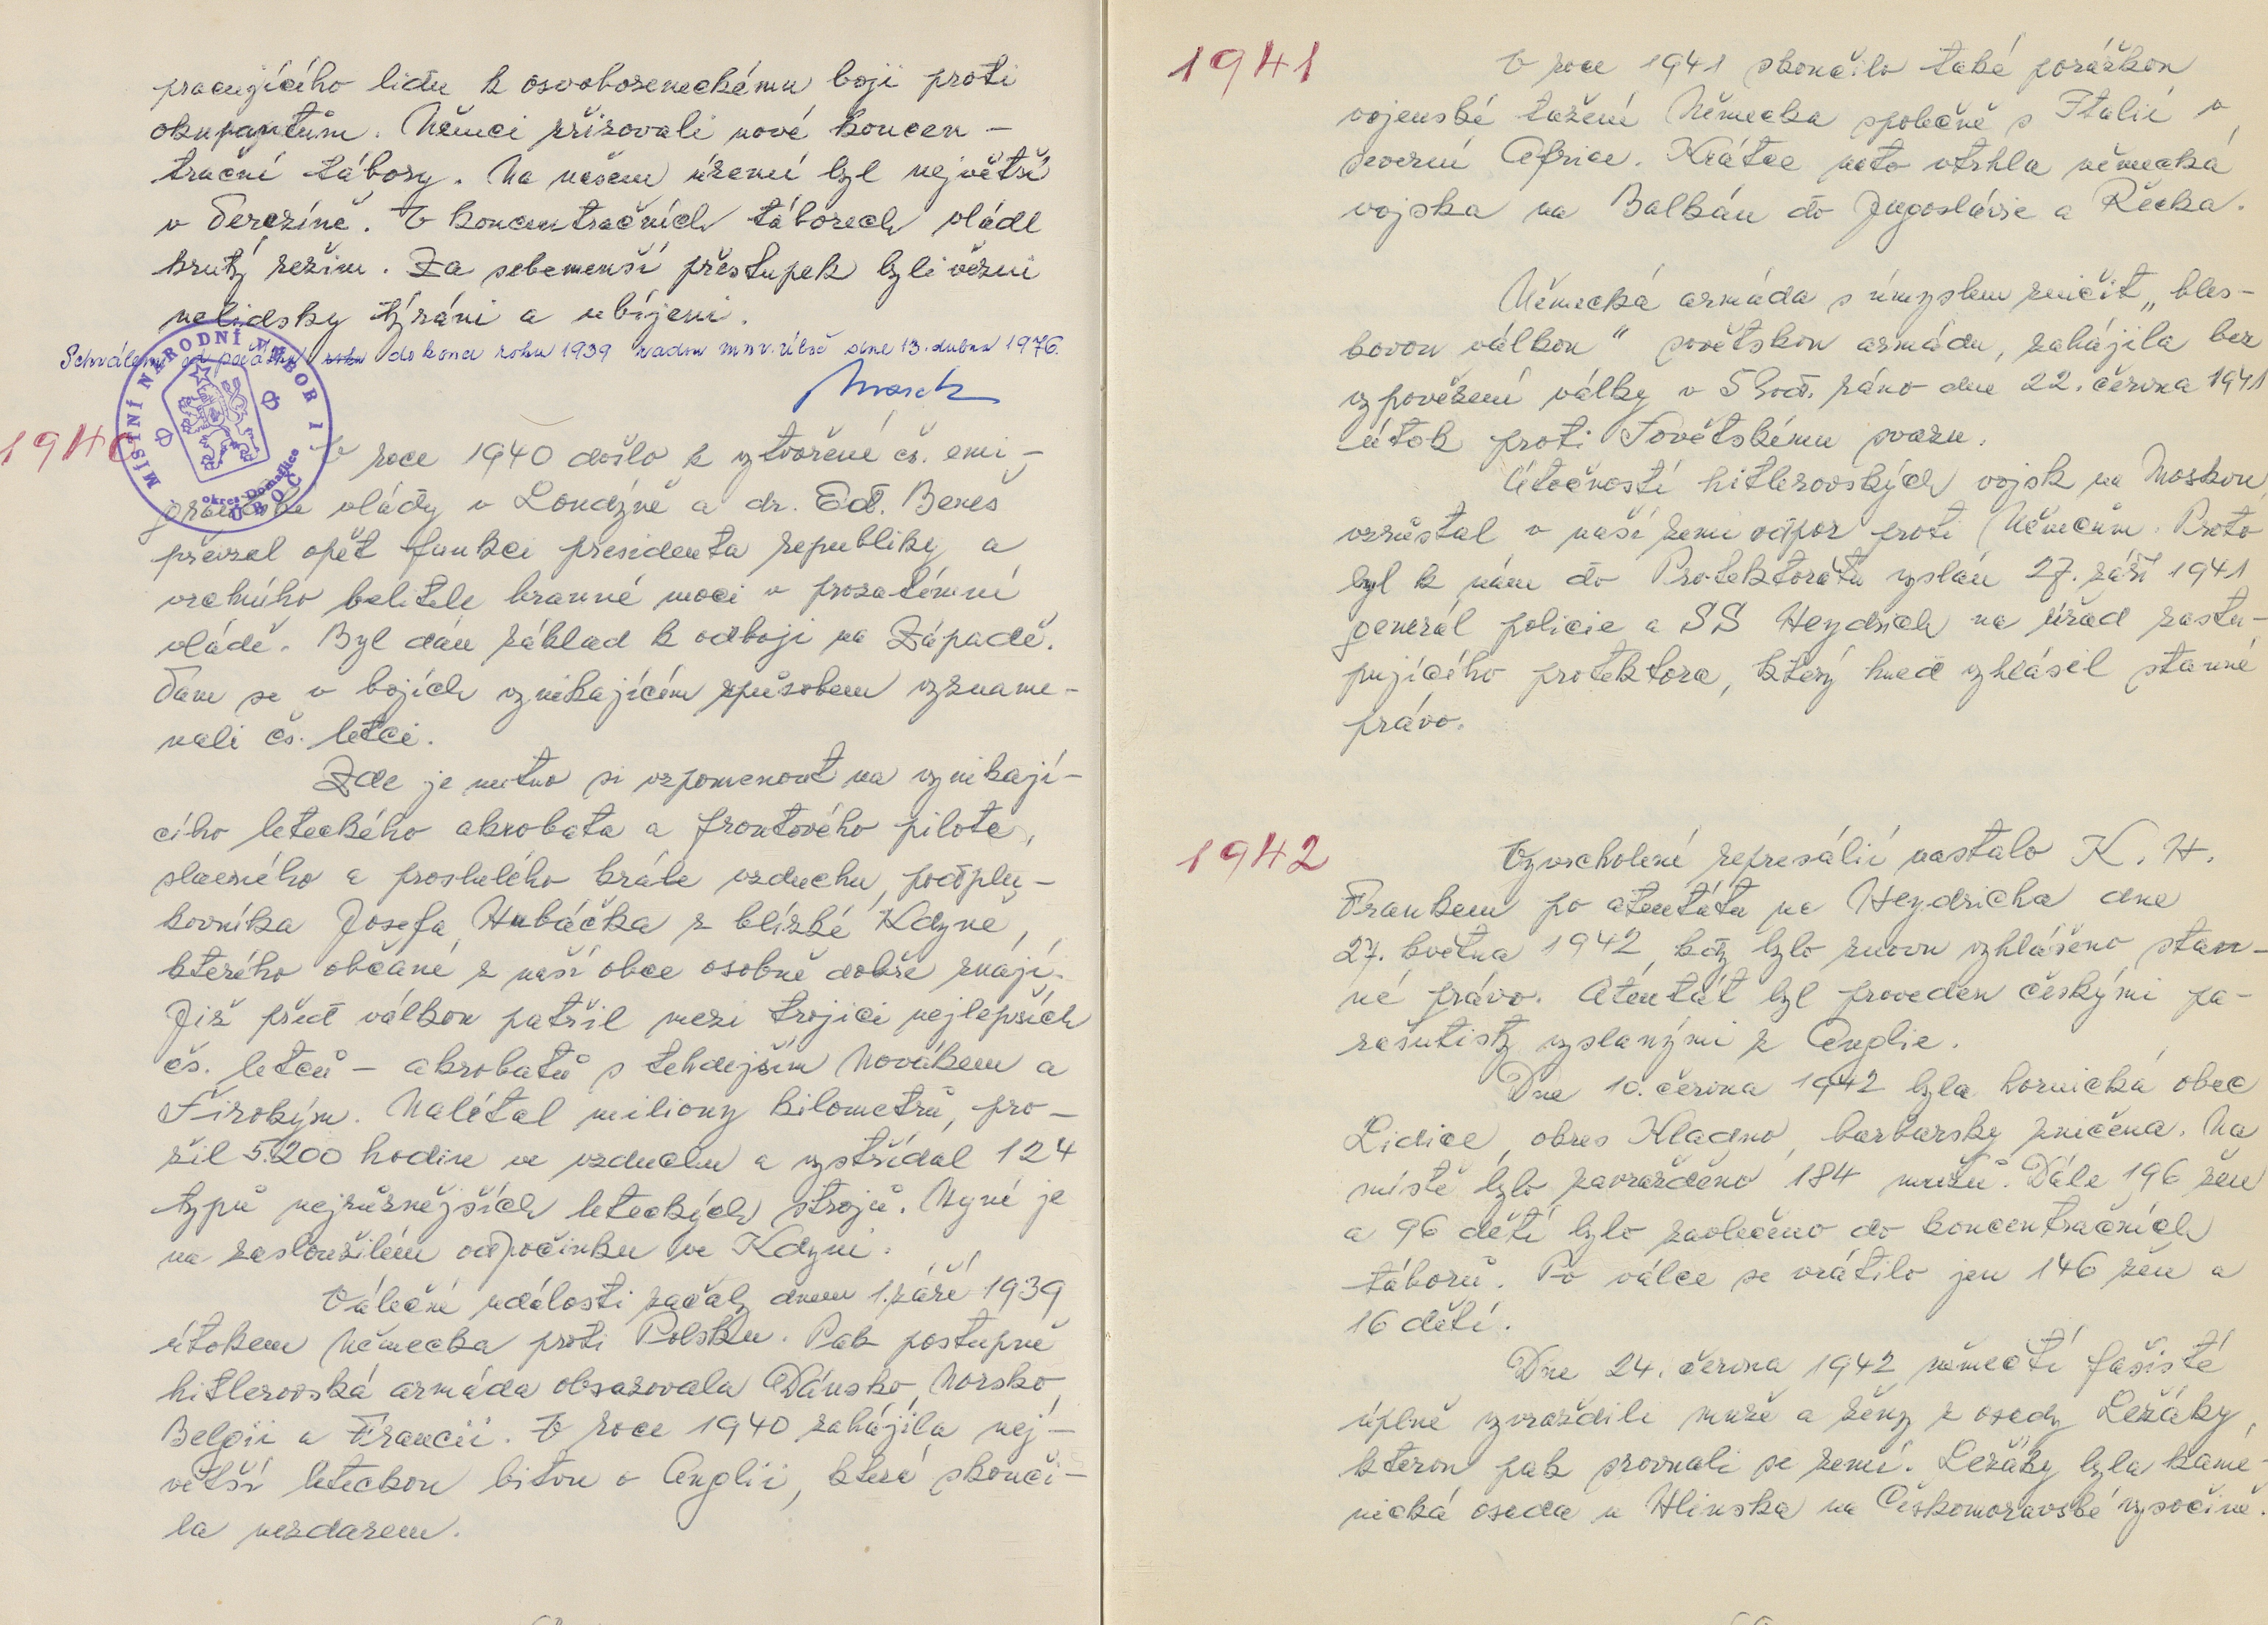 pracujícího lidu k osvobozeneckému boji proti
okupantům. Němci zřizovali nové koncen-
trační tábory. Na našem území byl největší
v Terezíně. V koncentračních táborech vládl
krutý režim. Za sebemenší přestupek byli vězni
nelidsky týráni a ubíjeni.
Schváleny od počátku roku do konce roku 1939 radou mnv. Úboč dne 13. dubna 1976.
MÍSTNÍ NÁRODNÍ VÝBOR 1
ÚBOČ
okres Domažlice
1940
V roce 1940 došlo k vytvoření čs. emi-
grantské vlády v Londýně a dr. Ed. Beneš
převzal opět funkci presidenta republiky a
vrchního velitele branné moci v prozatímní
vládě. Byl dán základ k odboji na Západě.
Tam se v bojích vynikajícím způsobem vyzname-
nali čs. letci.
Zde je nutno si vzpomenout na vynikají-
cího leteckého akrobata a frontového pilota,
slavného a proslulého krále vzduchu, podplu-
kovníka Josefa Hubáčka z blízké Kdyně,
kterého občané z naší obce osobně dobře znají.
Již před válkou patřil mezi trojici nejlepších
čs. letců - akrobatů s tehdejším Novákem a
Širokým. Nalétal miliony kilometrů, pro-
žil 5.200 hodin ve vzduchu a vystřídal 124
typů nejrůznějších leteckých strojů. Nyní je
na zaslouženém odpočinku ve Kdyni.
Válečné události začaly dnem 1. září 1939
útokem Německa proti Polsku. Pak postupně
hitlerovská armáda obsazovala Dánsko, Norsko,
Belgii a Francii. V roce 1940 zahájila nej-
větší leteckou bitvu o Anglii, která skonči-
la nezdarem.
1941
V roce 1941 skončilo také porážkou
vojenské tažení Německa společně s Italií v
severní Africe. Krátce nato vtrhla německá
vojska na Balkán do Jugoslávie a Řecka.
Německá armáda s úmyslem zničit "bles-
kovou válkou" sovětskou armádu, zahájila bez
vypovězení války v 5 hod. ráno dne 22. června 1941
útok proti Sovětskému svazu.
Útočností hitlerovských vojsk na Moskvu
vzrůstal v naší zemi odpor proti Němcům. Proto
byl k nám do Protektorátu vyslán 27. září 1941
generál policie a SS Heydrich na úřad zastu-
pujícího protektora, který hned vyhlásil stanné
právo.
1942
Vyvrcholení represálií nastalo K. H.
Frankem po atentátu na Heydricha dne
27. května 1942, kdy bylo znovu vyhlášeno stan-
né právo. Atentát byl proveden českými pa-
rašutisty vyslanými z Anglie.
Dne 10. června 1942 byla hornická obec
Lidice, okres Kladno, barbarsky zničena. Na
místě bylo zavražděno 184 mužů. Dále 196 žen
a 96 dětí bylo zavlečeno do koncentračních
táborů. Po válce se vrátilo jen 146 žen a
16 dětí.
Dne 24. června 1942 němečtí fašisté
úplně vyvraždili muže a ženy z osady Ležáky,
kterou pak srovnali se zemí. Ležáky byla kame-
nická osada u Hlinska na Českomoravské vysočině.